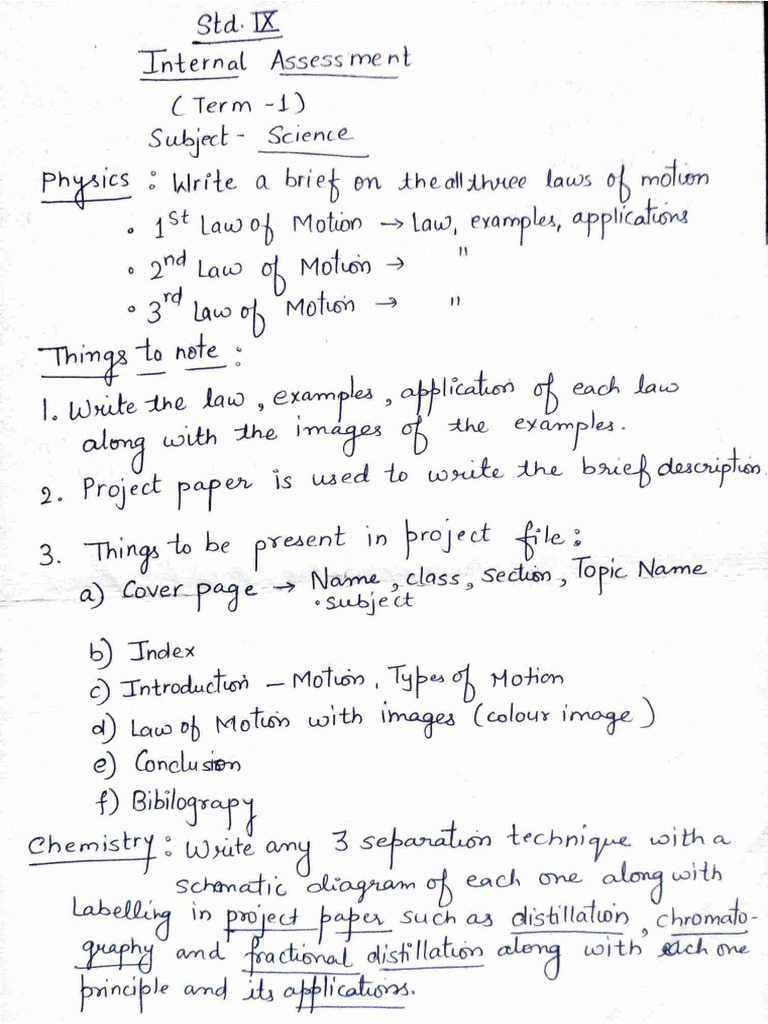 Std. IX
Internal Assessment
(Term -1)
Subject - Science
Physics : Write a brief on the all three laws of motion
• 1st Law of Motion → Law, examples, applications
• 2nd Law of Motion → "
• 3rd Law of Motion → "
Things to note :
1. Write the law, examples, application of each law
along with the images of the examples.
2. Project paper is used to write the brief description.
3. Things to be present in project file :
a) Cover page → Name, class, section, Topic Name
• subject
b) Index
c) Introduction – Motion, Types of Motion
d) Law of Motion with images (colour image)
e) Conclusion
f) Bibilograpy
Chemistry : Write any 3 separation technique with a
schematic diagram of each one along with
Labelling in project paper such as distillation, chromato-
graphy and fractional distillation along with each one
principle and its applications.